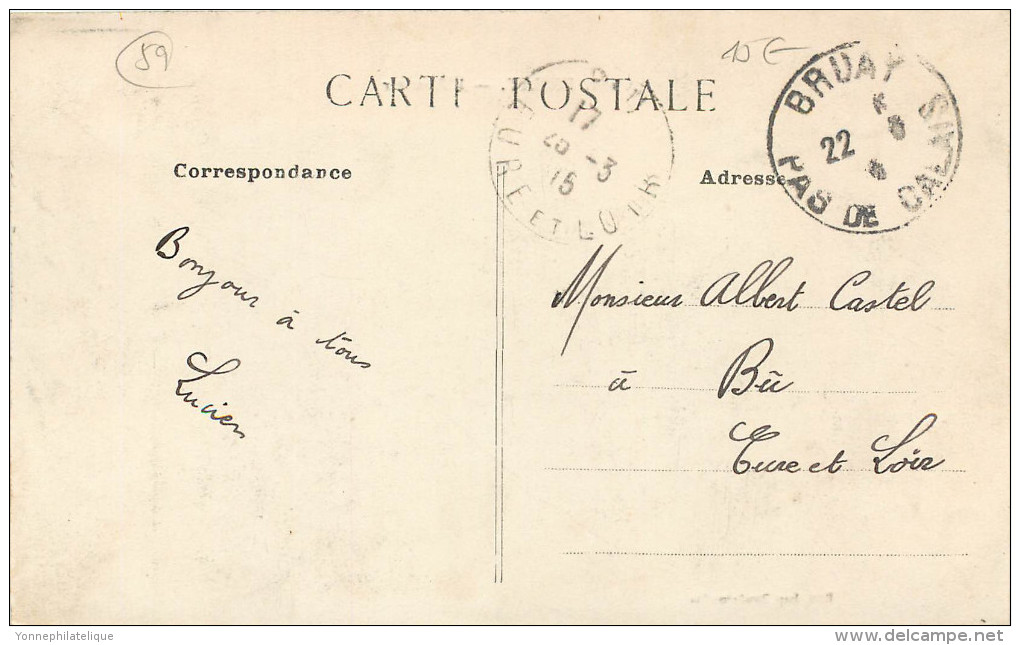 59
15 €
CARTE POSTALE
BRUAY
22
PAS DE CALAIS
17
-3
15
EURE ET LOIR
Correspondance
Adresse
Bonjour à tous
Lucien
Monsieur Albert Castel
à Bû
Eure et Loir
Yonnephilatelique
www.delcampe.net